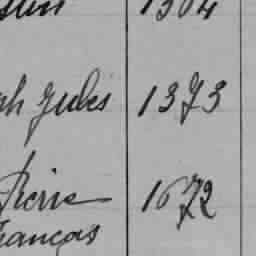 1304
ph Jules 1373
Pierre 1672
François